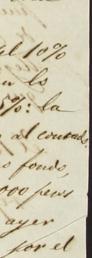 al 10%
en lo
5%: la
al contado.
o fondo,
000 pesos
ayer
por el